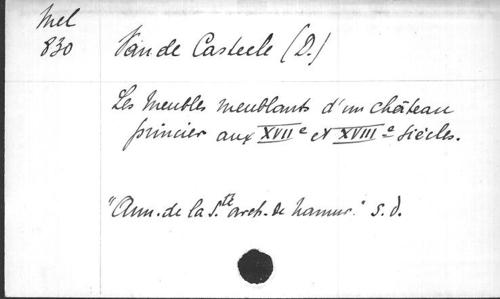 Mel
830
Van de Casteele (D.)
Les Meubles meublants d'un château
princier aux XVIIe et XVIIIe Siècles.
"Ann. de la S.té arch. de Namur." s. d.